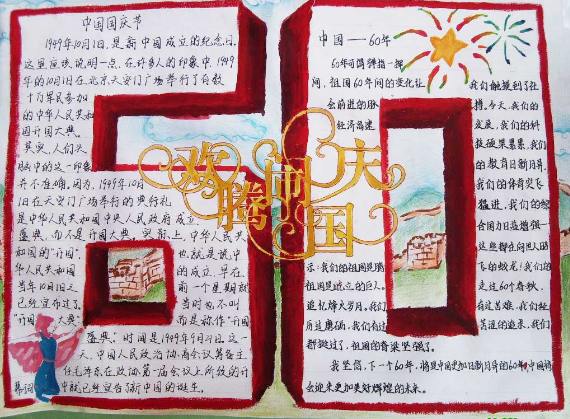 中国国庆节
1949年10月1日,是新中国成立的纪念日。
这里应该说明一点,在许多人的印象中,1949
年的10月1日在北京天安门广场举行了有数
十万军民参加
的中华人民共和
国开国大典。
其实,人们头
脑中的这一印象
并不准确。因为,1949年10月
1日在天安门广场举行的典礼
是中华人民共和国中央人民政府成立
盛典,而不是开国大典。实际上,中华人民共
和国的"开国",也就是说中
华人民共和国的成立,早在
当年10月1日前一个星期就
已经宣布过了。当时也不叫
"开国大典"而是称作"开国
盛典。时间是1949年9月21日这一
天,中国人民政治协商会议筹备主
任毛泽东在政协第一届会议上所致的开
幕词中就已经宣告了新中国的诞生。
中国——60年
60年可谓弹指一挥
间,祖国60年间的变化让
我们触摸到了社
会前进的脉
搏。今天,我们的
经济高速
发展,我们的科
技硕果累累,我们
的教育日新月异,
我们的体育突飞
猛进,我们的综
合国力日益增强……
这些都在向世人昭
示:我们的祖国是腾飞的蛟龙;我们的
祖国是屹立的巨人。走过60个春秋,
追忆烽火岁月。我们有过苦难,我们经
历过磨砺,我们有过苦涩的追求,我们
都挺过了,祖国的脊梁坚强了。
我坚信,下一个60年,将是中国更加日新月异的60年,中国将
会迎来更加美好辉煌的未来。
欢腾闹国庆